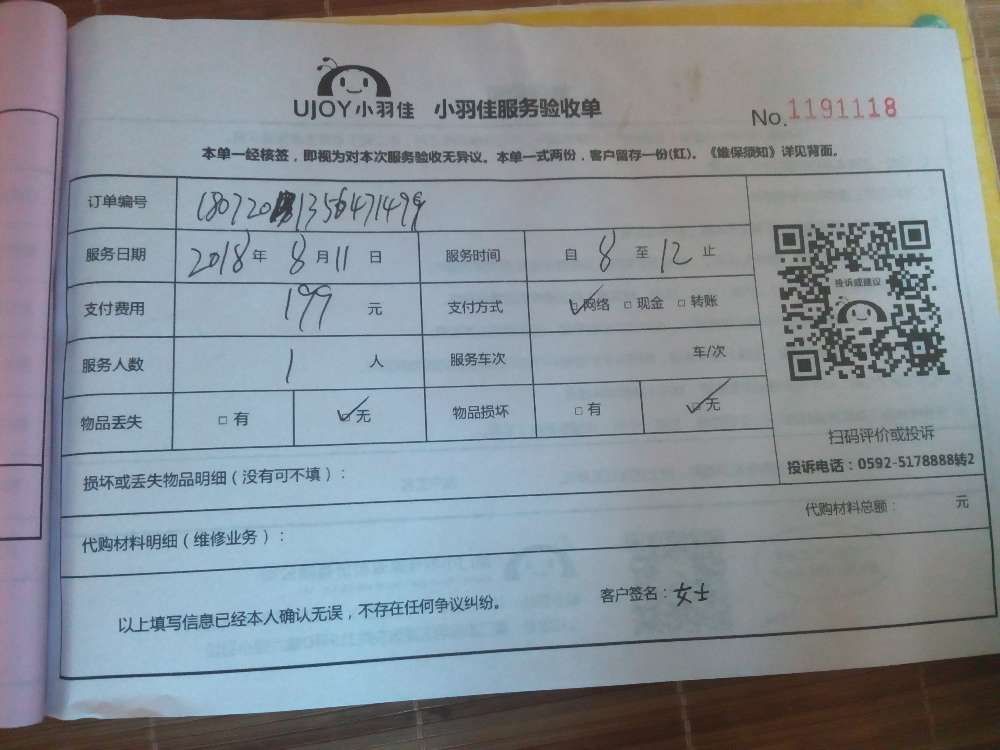 UJOY小羽佳 小羽佳服务验收单
No.1191118
本单一经核签，即视为对本次服务验收无异议。本单一式两份，客户留存一份(红)。《维保须知》详见背面。
订单编号
服务日期 2018年 8月11日 服务时间 自 8 至 12 止
投诉或建议
支付费用 199 元 支付方式 ☑网络 □现金 □转账
服务人数 1 人 服务车次 车/次
物品丢失 □有 ☑无 物品损坏 □有 ☑无
扫码评价或投诉
投诉电话：0592-5178888转2
损坏或丢失物品明细（没有可不填）：
代购材料总额： 元
代购材料明细（维修业务）：
以上填写信息已经本人确认无误，不存在任何争议纠纷。 客户签名：女士